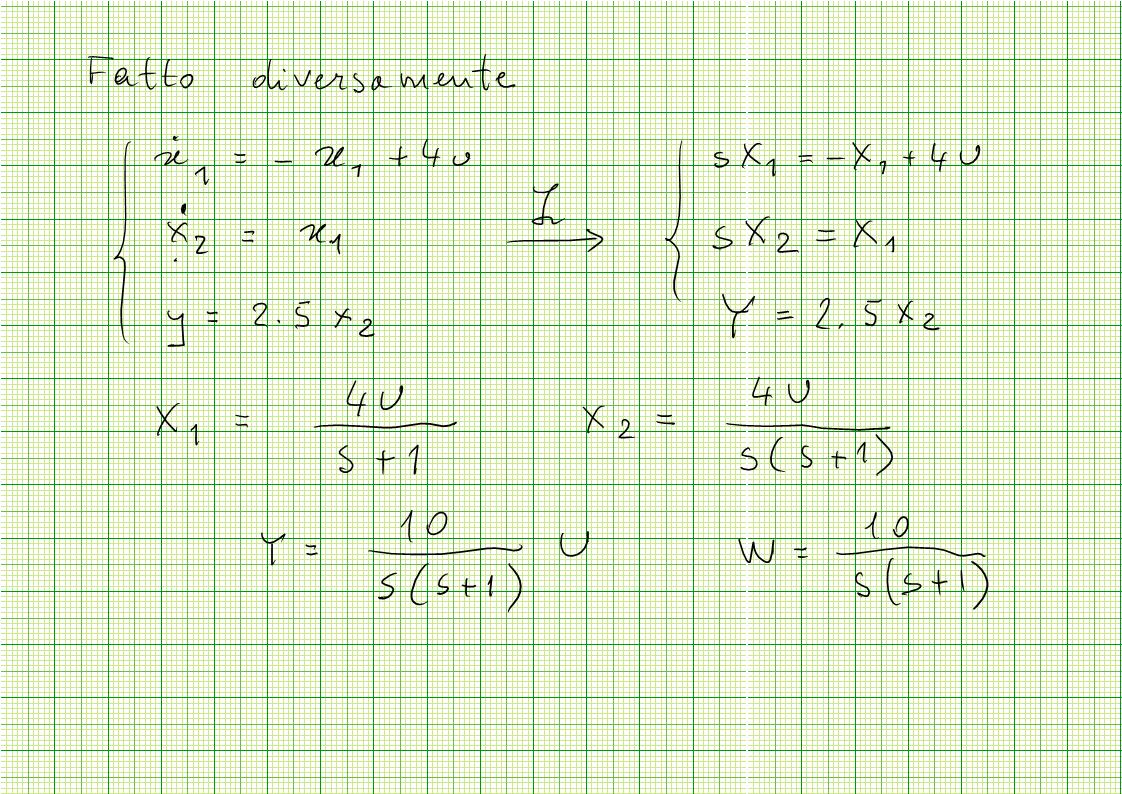 Fatto diversamente
ẋ₁ = - x₁ + 4u    sX₁ = -X₁ + 4U
ẋ₂ = x₁    ℒ →    sX₂ = X₁
y = 2.5 x₂    Y = 2.5 x₂
X₁ = 4U / (s+1)    X₂ = 4U / (s(s+1))
Y = 10 / (s(s+1)) U    W = 10 / (s(s+1))